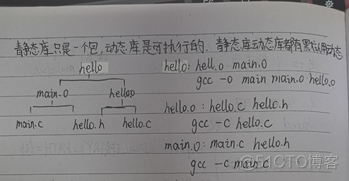 静态库只是一个包,动态库是可执行的. 静态库动态库都有默认用动态
hello
hello: hello.o main.o
gcc -o main main.o hello.o
main.o hello.o
hello.o: hello.c hello.h
main.c hello.h hello.c
gcc -c hello.c
main.o: main.c hello.h
gcc -c main.c
@51CTO博客